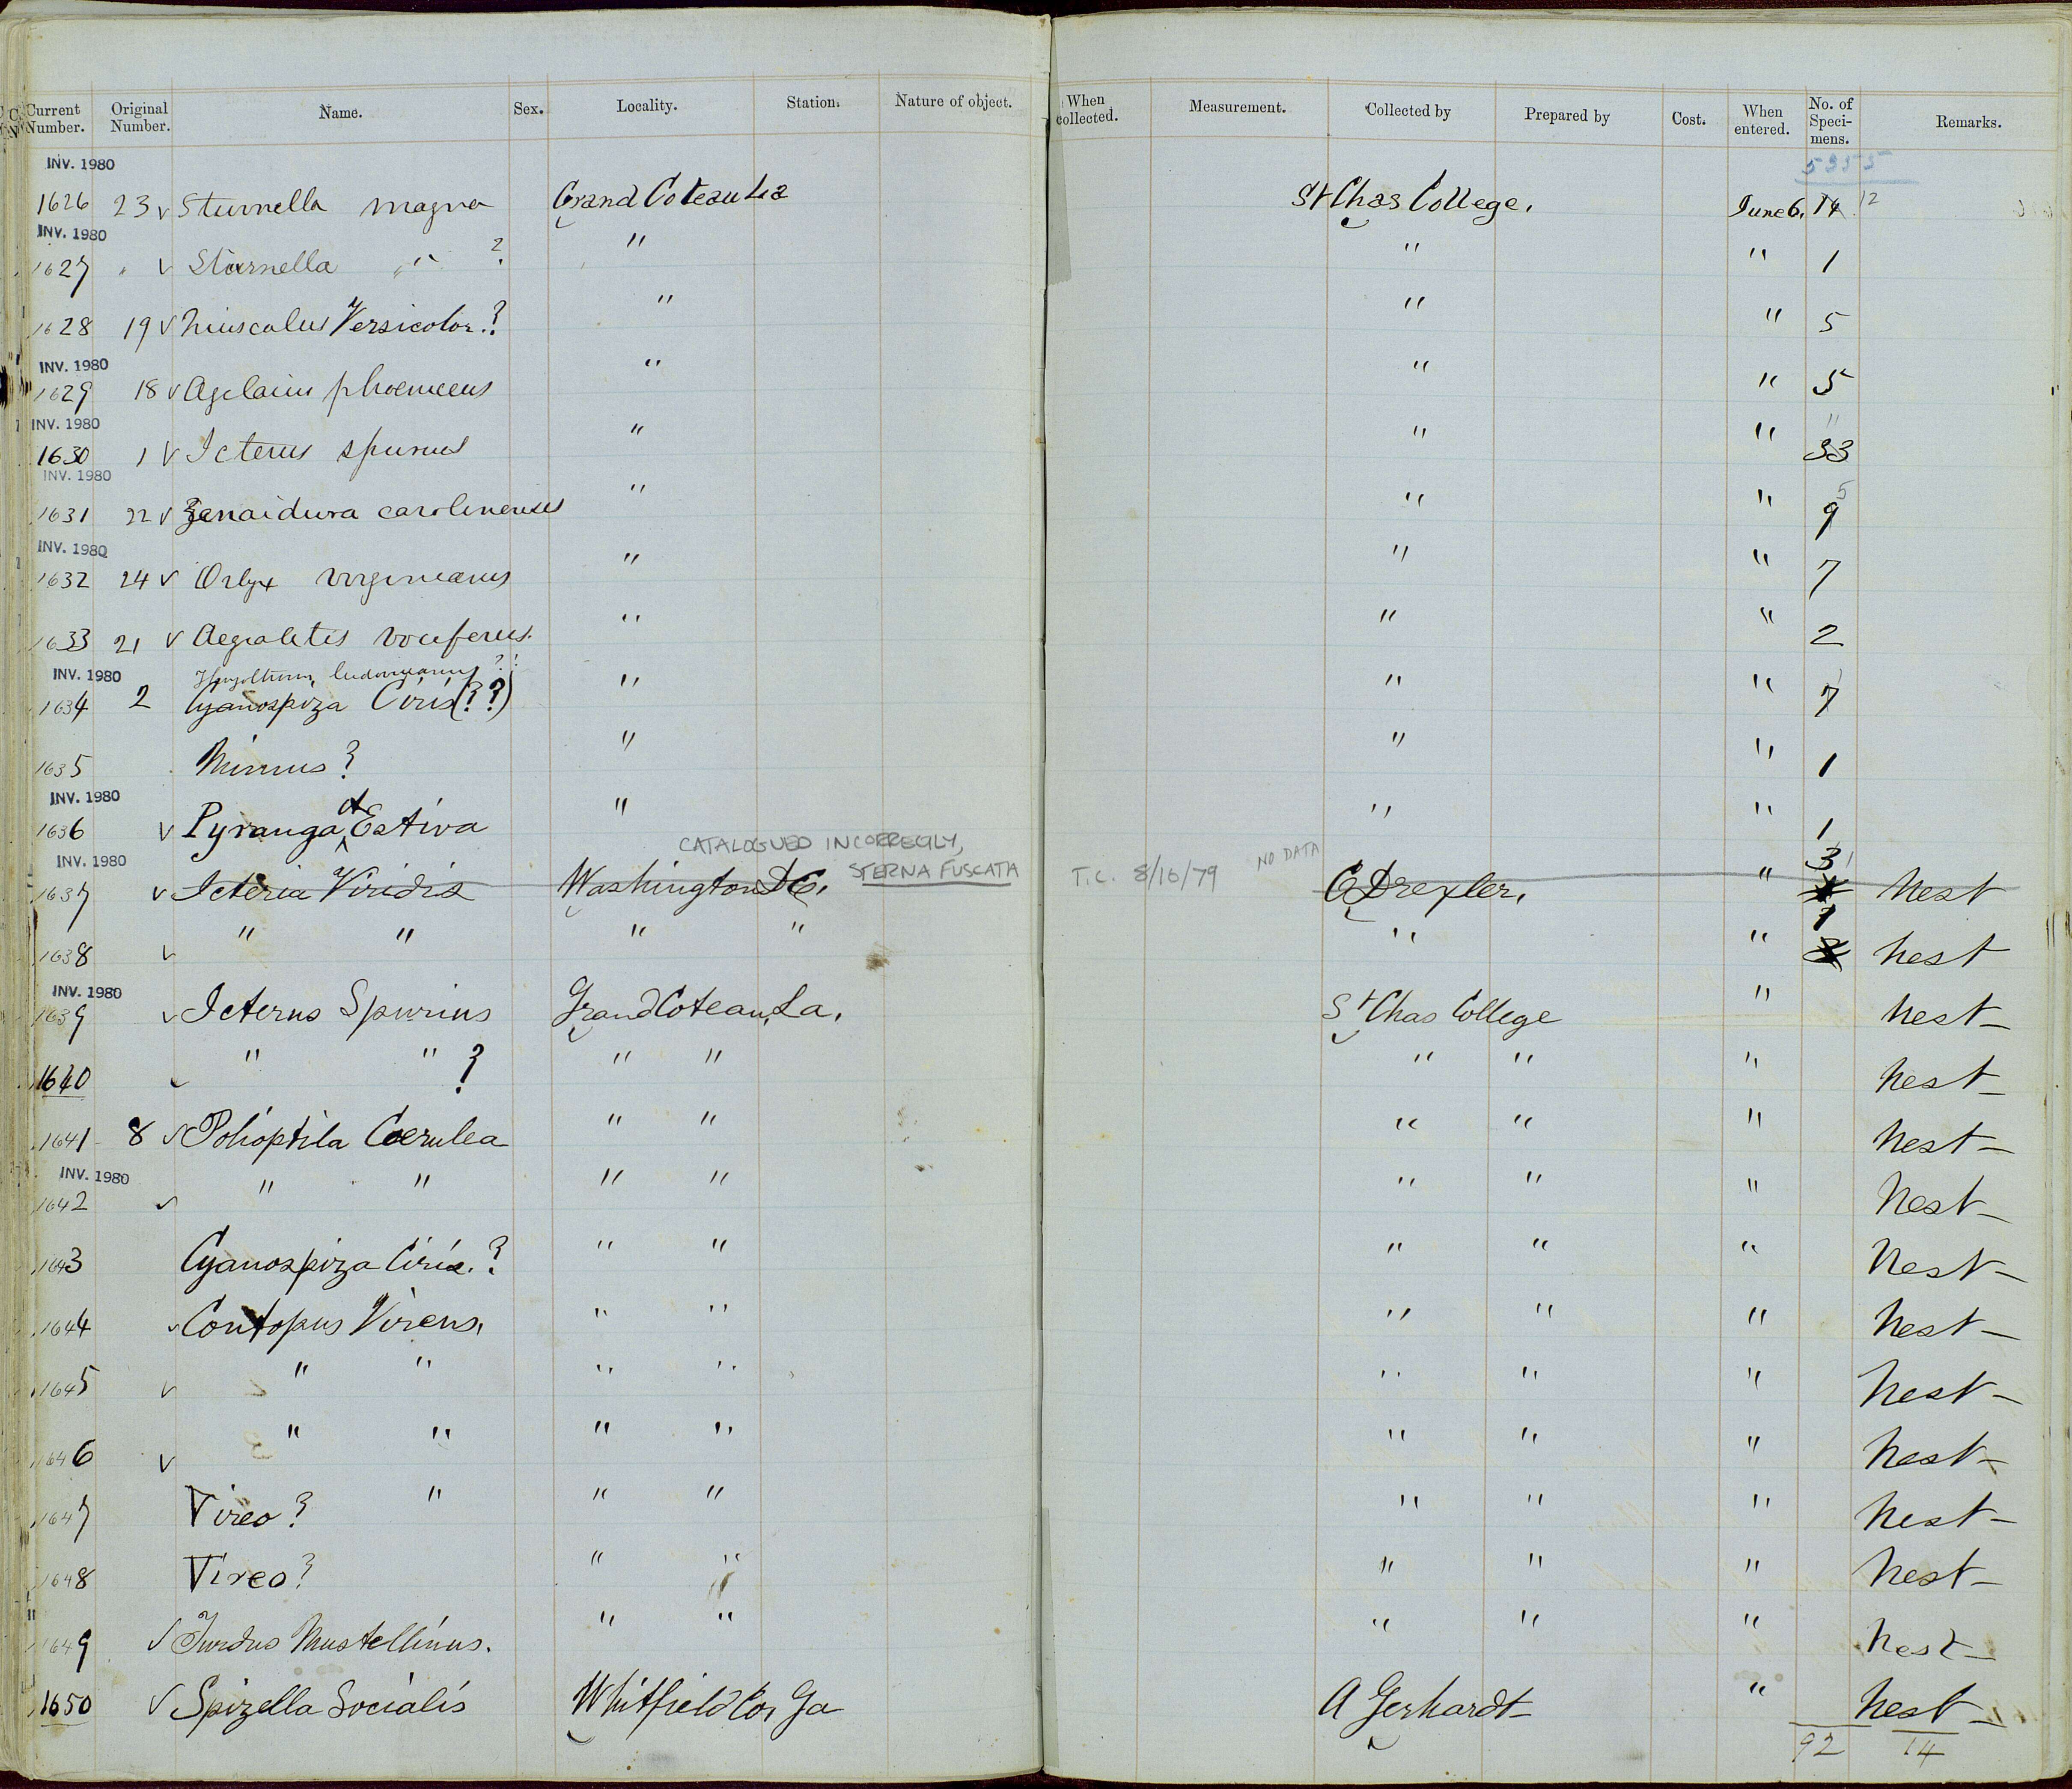 Current Number. Original Number. Name. Sex. Locality. Station. Nature of object. When collected. Measurement. Collected by Prepared by Cost. When entered. No. of Speci- mens. Remarks.
5355
INV. 1980
1626 23 v Sturnella magna Grand Coteau La St Chas College. June 6. 14 12
INV. 1980
1627 " v Sturnella " ? " " " 1
1628 19 v Quiscalus Versicolor.? " " " 5
INV. 1980
1629 18 v Agelaius phoeniceus " " " 5
INV. 1980
11
1630 1 v Icterus spurius " " " 33
INV. 1980
5
1631 22 v Zenaidura carolinensis " " " 9
INV. 1980
1632 24 v Ortyx virginianus " " " 7
1633 21 v Aegialitis vociferus. " " " 2
INV. 1980 ludovicianus ??
1634 2 Cyanospiza Ciris (??) " " " 7
1635 Mimus? " " " 1
INV. 1980
1636 v Pyranga Æstiva " " " 1
CATALOGUED INCORRECTLY,
INV. 1980 STERNA FUSCATA T.C. 8/16/79 NO DATA
1637 v Icteria Viridis Washington D C. C Drexler. " 3 Nest
1638 v " " " " " " 1 Nest
INV. 1980
1639 v Icterus Spurius Grand Coteau, La. St Chas College " Nest
1640 v " " ? " " " " " Nest
1641 8 v Polioptila Coerulea " " " " " Nest
INV. 1980
1642 v " " " " " " " Nest
1643 Cyanospiza Ciris.? " " " " " Nest
1644 v Contopus Virens. " " " " " Nest
1645 v " " " " " " " Nest
1646 v " " " " " " " Nest
1647 Vireo? " " " " " " Nest
1648 Vireo? " " " " " Nest
1649 v Turdus Mustellinus. " " " " " Nest
1650 v Spizella Socialis Whitfield Co, Ga A Gerhardt " Nest
92 14